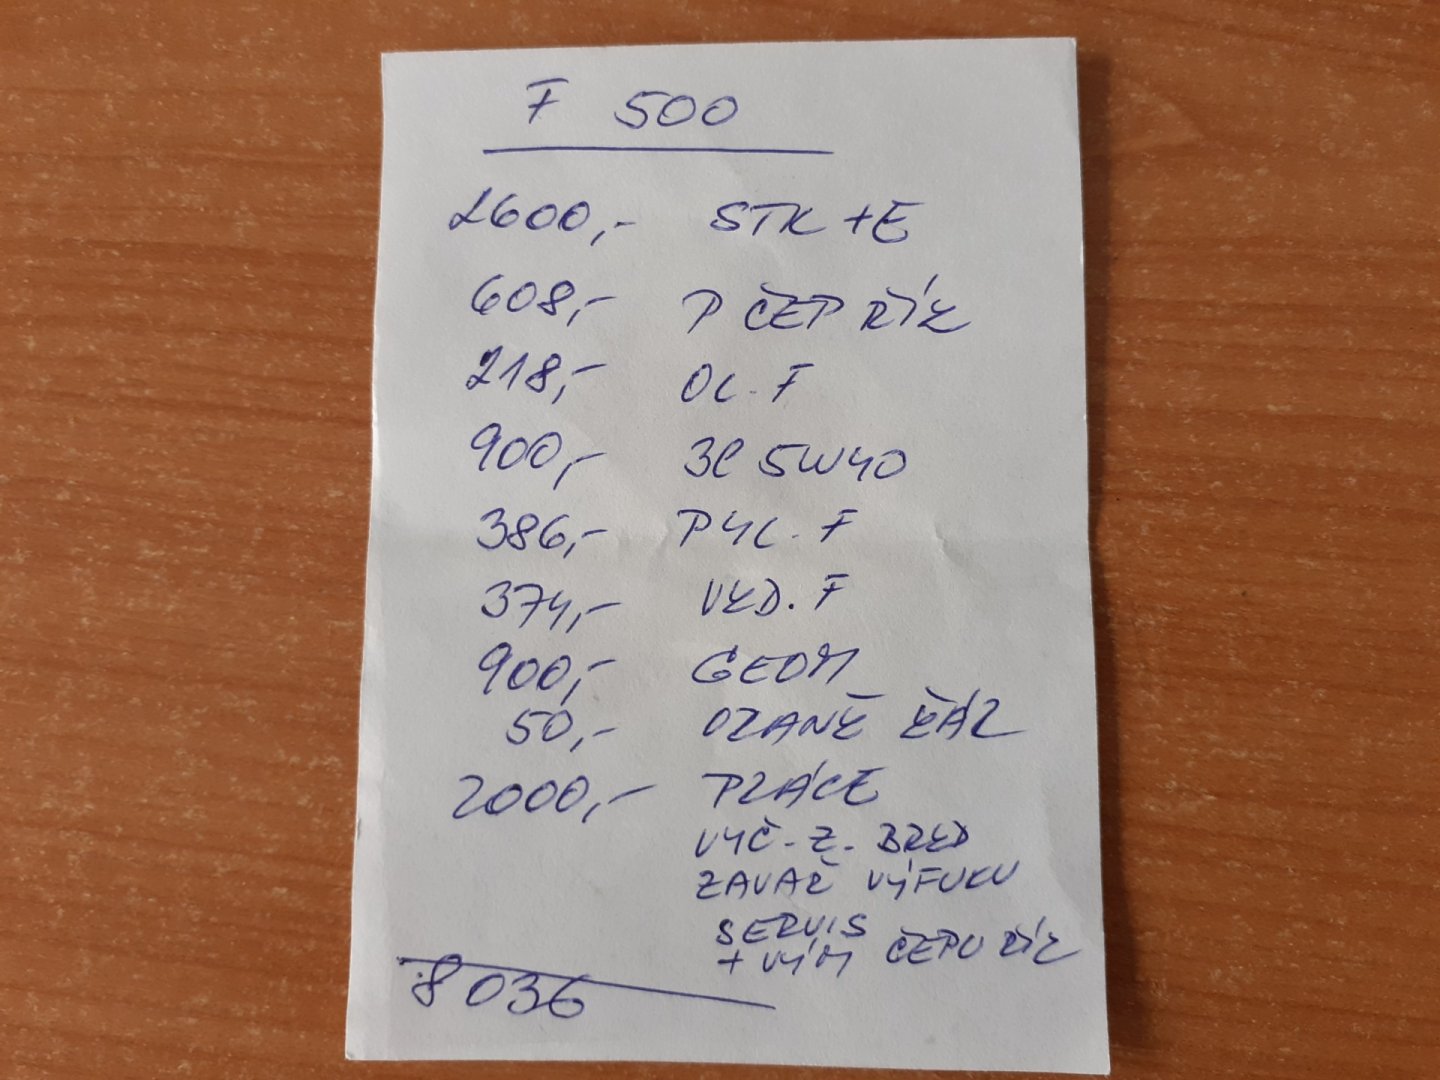 F 500
2600,- STK +E
608,- P ČEP ŘÍZ
218,- OL. F
900,- 3L 5W40
386,- PYL. F
374,- VZD. F
900,- GEOM
50,- ORANŽ ŽÁR
2000,- PRÁCE
VYČ. Z. BRZD
ZAVAŘ VÝFUKU
SERVIS
+ VÝM ČEPU ŘÍZ
8036